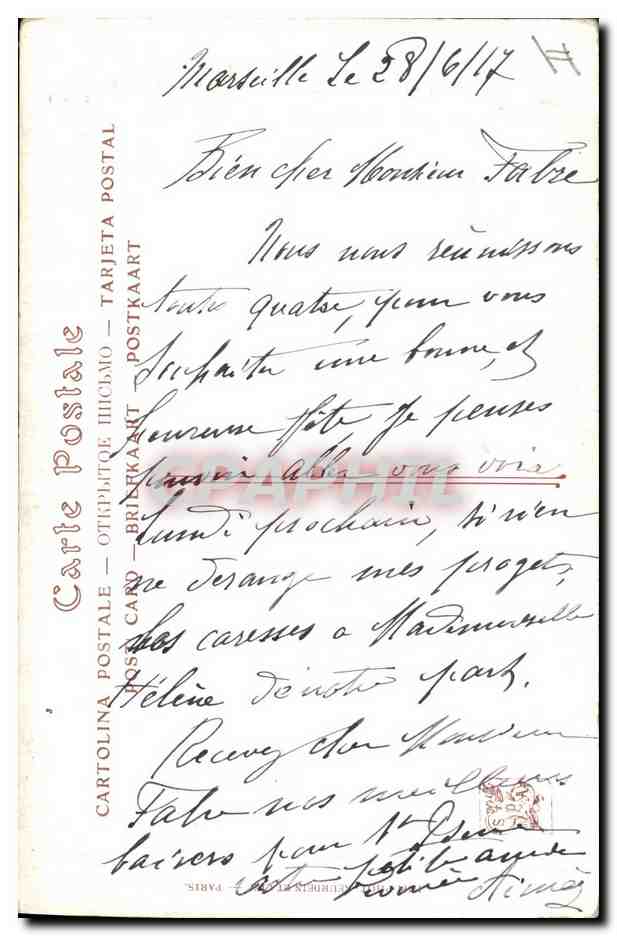 Marseille Le 28/6/17
Bien cher Monsieur Fabre
Nous nous réunissons
toute quatre, pour vous
souhaiter une bonne, et
heureuse fête je penses
pouvoir aller vous voir
Lundi prochain, si rien
ne derange mes progets,
Nos caresses a Mademoiselle
Hélène de notre part.
Recevez cher Monsieur
Fabre nos meilleurs
baisers pour
votre petite amie
Aimée
Carte Postale
CARTOLINA POSTALE — ОТКРЫТОЕ ПИСЬМО — TARJETA POSTAL
POST CARD — BRIEFKAART — POSTKAART
NEURDEIN ET — PARIS.
CPAPHIL